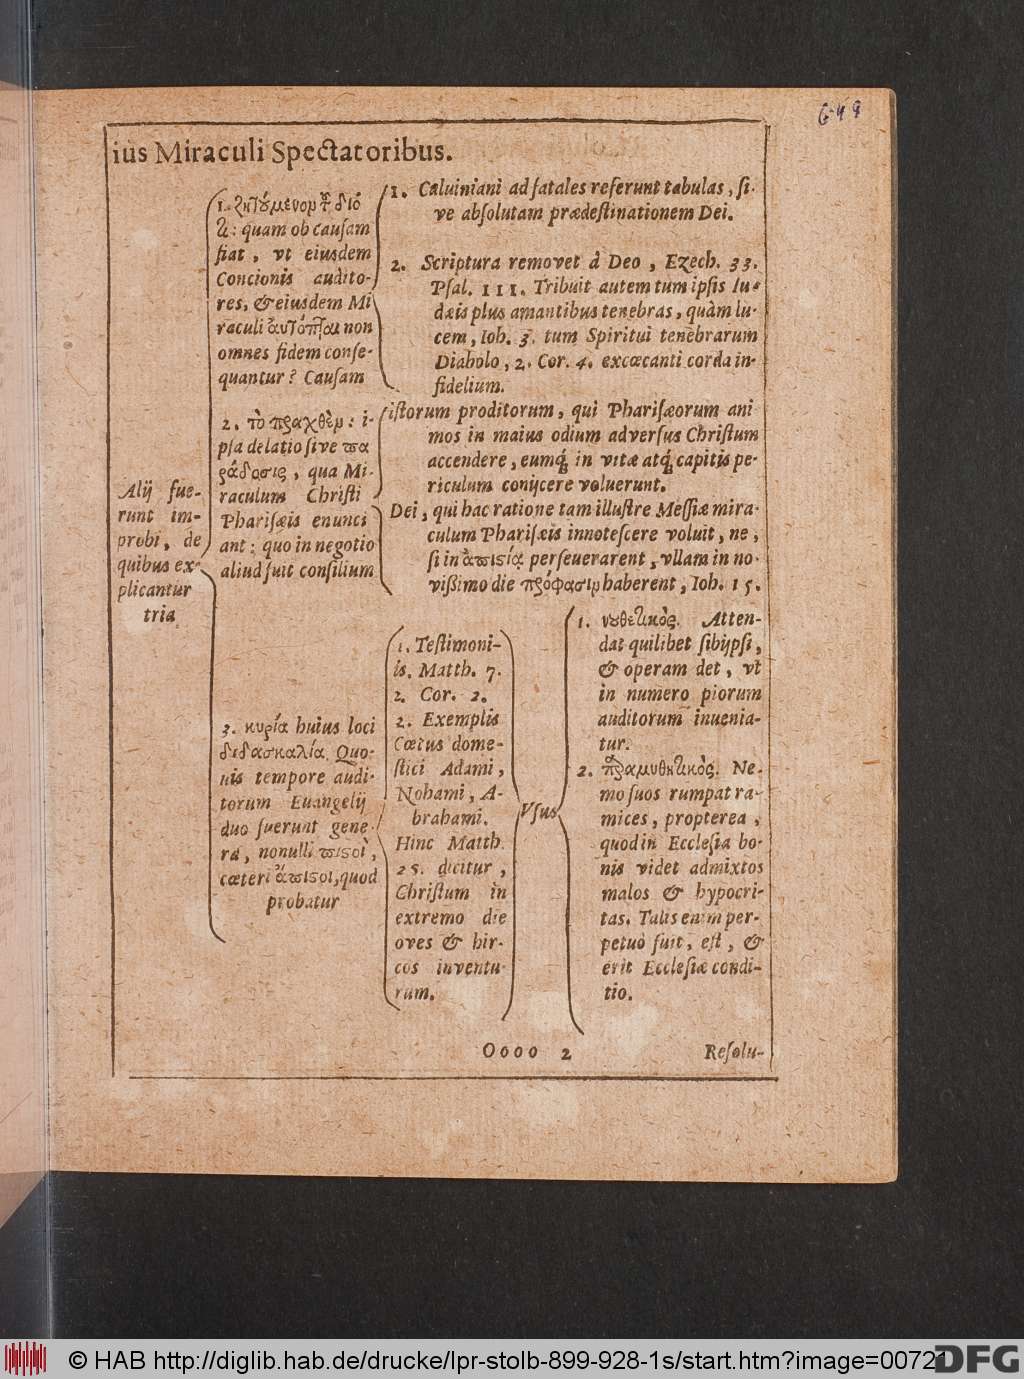 649
ius Miraculi Spectatoribus.
Alij fue-
runt im-
probi, de
quibus ex-
plicantur
tria
1. ζητούμενον τῆ διό
τι: quam ob causam
fiat, vt eiusdem
Concionis audito-
res, & eiusdem Mi
raculi αὐτόπται non
omnes fidem conse-
quantur? Causam
1. Caluiniani ad fatales referunt tabulas, si-
ve absolutam prædestinationem Dei.
2. Scriptura removet à Deo, Ezech. 33.
Psal. 111. Tribuit autem tum ipsis Iu-
dæis plus amantibus tenebras, quàm lu-
cem, Ioh. 3. tum Spiritui tenebrarum
Diabolo, 2. Cor. 4. excœcanti corda in-
fidelium.
2. τὸ πραχθὲν: i-
psa delatio sive πα
ράδοσις, qua Mi-
raculum Christi
Pharisæis enunci
ant: quo in negotio
aliud fuit consilium
istorum proditorum, qui Pharisæorum ani
mos in maius odium adversus Christum
accendere, eumq́; in vitæ atq́; capitis pe-
riculum conijcere voluerunt.
Dei, qui hac ratione tam illustre Messiæ mira-
culum Pharisæis innotescere voluit, ne,
si in ἀπιστίᾳ perseuerarent, vllam in no-
vißimo die πρόφασιν haberent, Ioh. 15.
3. κυρία huius loci
διδασκαλία. Quo-
uis tempore audi-
torum Euangelij
duo fuerunt gene-
ra, nonulli πιστοὶ,
cæteri ἄπιστοι, quod
probatur
1. Testimoni-
is. Matth. 7.
2. Cor. 2.
2. Exemplis
Cœtus dome-
stici Adami,
Nohami, A-
brahami.
Hinc Matth.
25. dicitur,
Christum in
extremo die
oves & hir-
cos inventu-
rum.
Vsus
1. νουθετικὸς. Atten-
dat quilibet sibijpsi,
& operam det, vt
in numero piorum
auditorum inuenia-
tur.
2. παραμυθητικὸς. Ne-
mo suos rumpat ra-
mices, propterea,
quod in Ecclesia bo-
nis videt admixtos
malos & hypocri-
tas. Talis enim per-
petuò fuit, est, &
erit Ecclesiæ condi-
tio.
Oooo 2
Resolu-
© HAB http://diglib.hab.de/drucke/lpr-stolb-899-928-1s/start.htm?image=00721
DFG